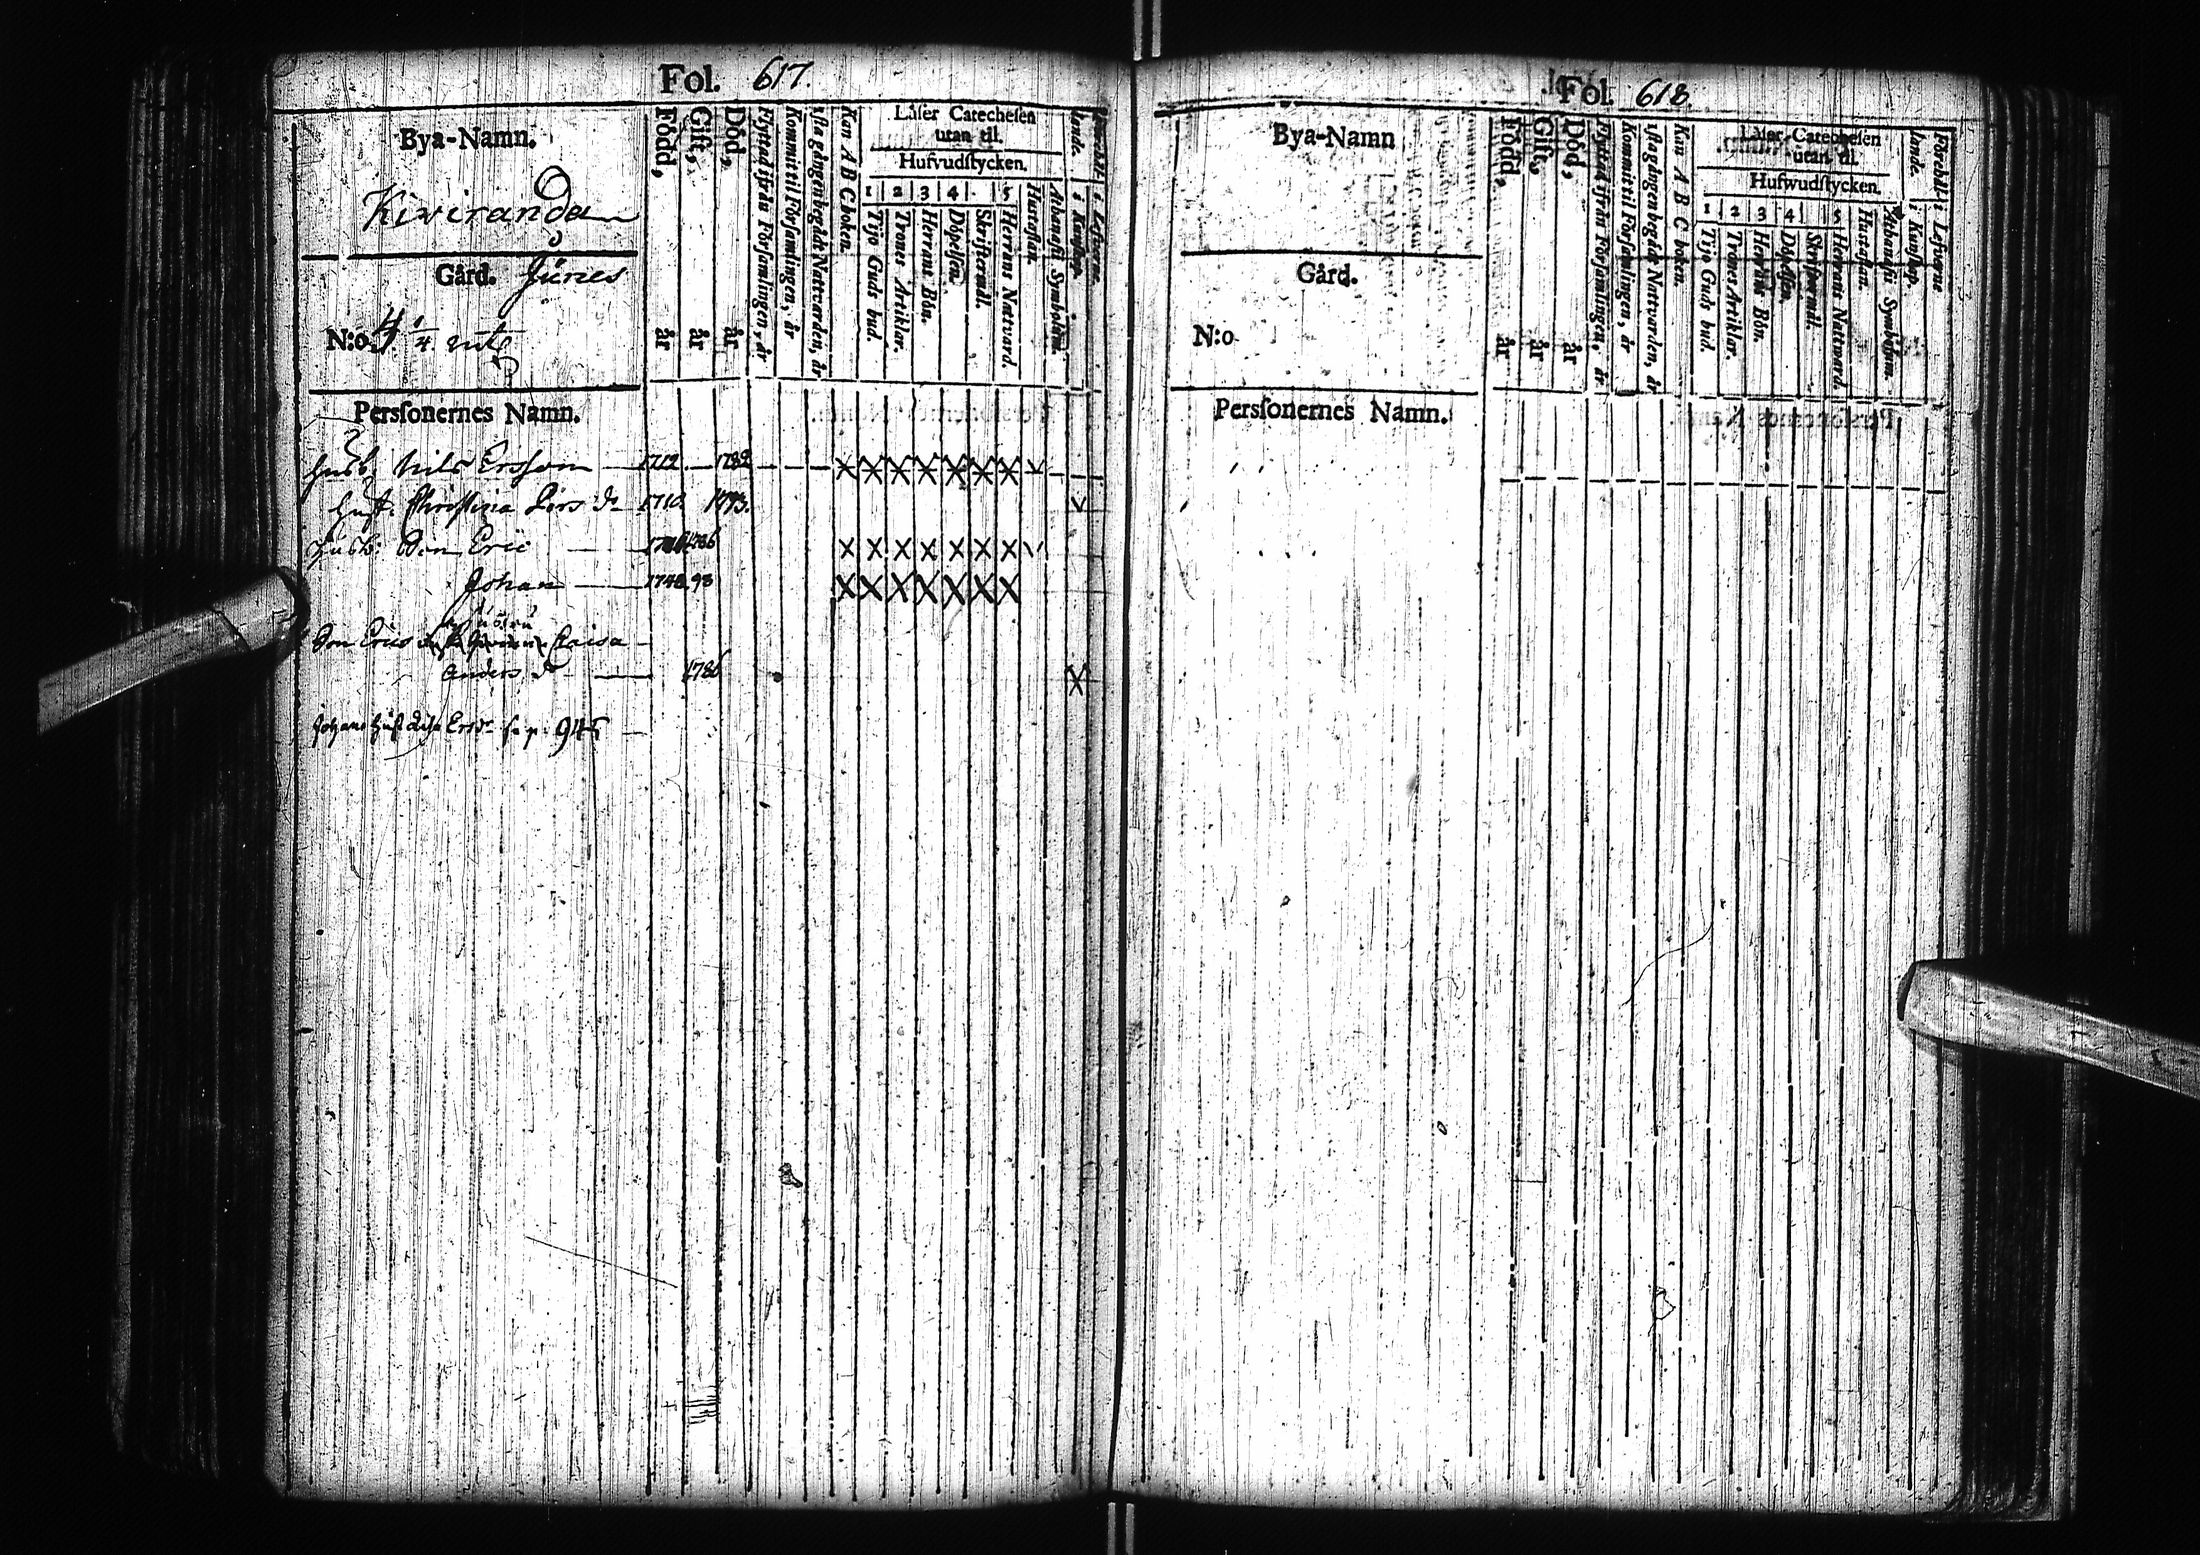 Fol. 617.
Bya-Namn.
Kiviranda
Gård. Jüries
N:o 4 1/4
Född, år
Gift, år
Död, år
Flyttad ifrån Församlingen, år
Kommit til Församlingen, år
1sta gången begådt Nattvarden, år
Kan A B C boken.
Låser Catechesen
utan til.
Hufvudstycken.
1 2 3 4 5
Tijo Guds bud.
Trones Artiklar.
Herrans Bön.
Döpelsen.
Skriftermål.
Herrans Natvard.
Hustaflan.
Athanasii Symbolum.
i Kunskap.
i Lefverne.
Personernes Namn.
Husb. Nils Ersson 1712 1789 X X X X X X X
Hust. Christina Lars dr 1710. 1793.
Husb: Son Eric 1786 X X X X X X X
Johan 1748 93 X X X X X X X
Son Erics Caisa
Anders dr 1786
Johans Hust Ersdr s. p. 945
Fol. 618.
Bya-Namn
Gård.
N:o
Född, år
Gift, år
Död, år
Flyttad ifrån Församlingen, år
Kommit til Församlingen, år
1sta gången begådt Nattvarden, år
Kan A B C boken.
Låser Catechesen
utan til.
Hufwudstycken.
1 2 3 4 5
Tijo Guds bud.
Trones Artiklar.
Herrans Bön.
Döpelsen.
Skriftermål.
Herrans Nattward.
Hustaflan.
Athanasii Symbolum.
Förehållande.
i Kunskap.
i Lefverne
Personernes Namn.